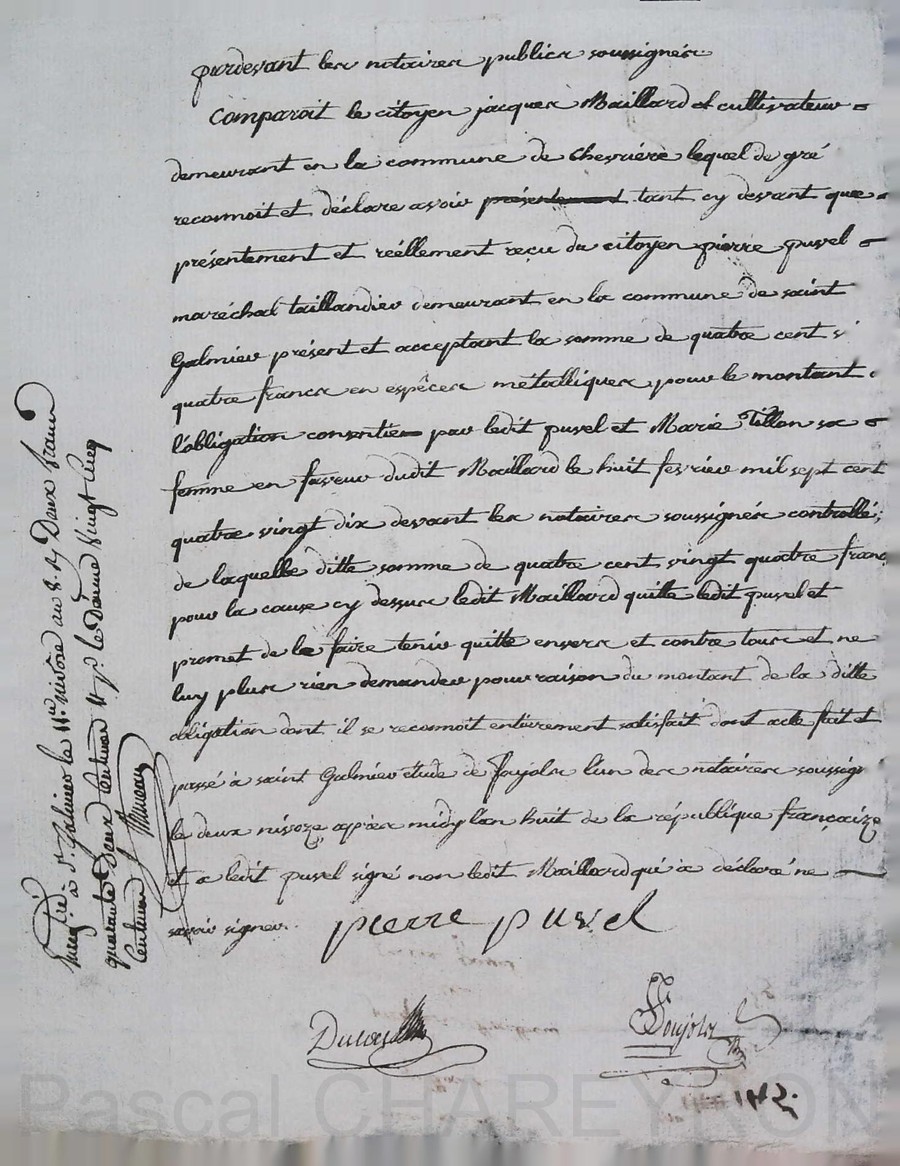 pardevant les notaires publics soussignés
Comparoit le citoyen jacques Maillard et cultivateur
demeurant en la commune de chevriére lequel de gré
reconnoit et déclare avoir présentement tant cy devant que
présentement et réellement reçu du citoyen pierre puvel
maréchal taillandier demeurant en la commune de saint
Galmier présent et acceptant la somme de quatre cent
quatre francs en espêces métalliques pour le montant
l'obligation consentie par ledit puvel et Marie Tillon sa
femme en faveur dudit Maillard le huit fevrier mil sept cent
quatre vingt dix devant les notaires soussignés controllé;
de laquelle ditte somme de quatre cent vingt quatre franc
pour la cause cy dessus ledit Maillard quitte ledit puvel et
promet de le faire tenir quitte envers et contre tous et ne
luy plus rien demander pour raison du montant de la ditte
obligation dont il se reconnoit entierement satisfait dont acte fait et
passé à saint Galmier étude de Poujols l'un des notaires soussig
le deux nivoze après midy l'an huit de la république françaize
et a ledit puvel signé non ledit Maillard qui a déclaré ne
savoir signer.
pierre puvel
Poujols
Enregtré à St. Galmier le 11e nivose an 8. Deux francs
quarante Deux Centimes le Dixme Vingt Cinq
Centimes
Pascal CHAREYRON